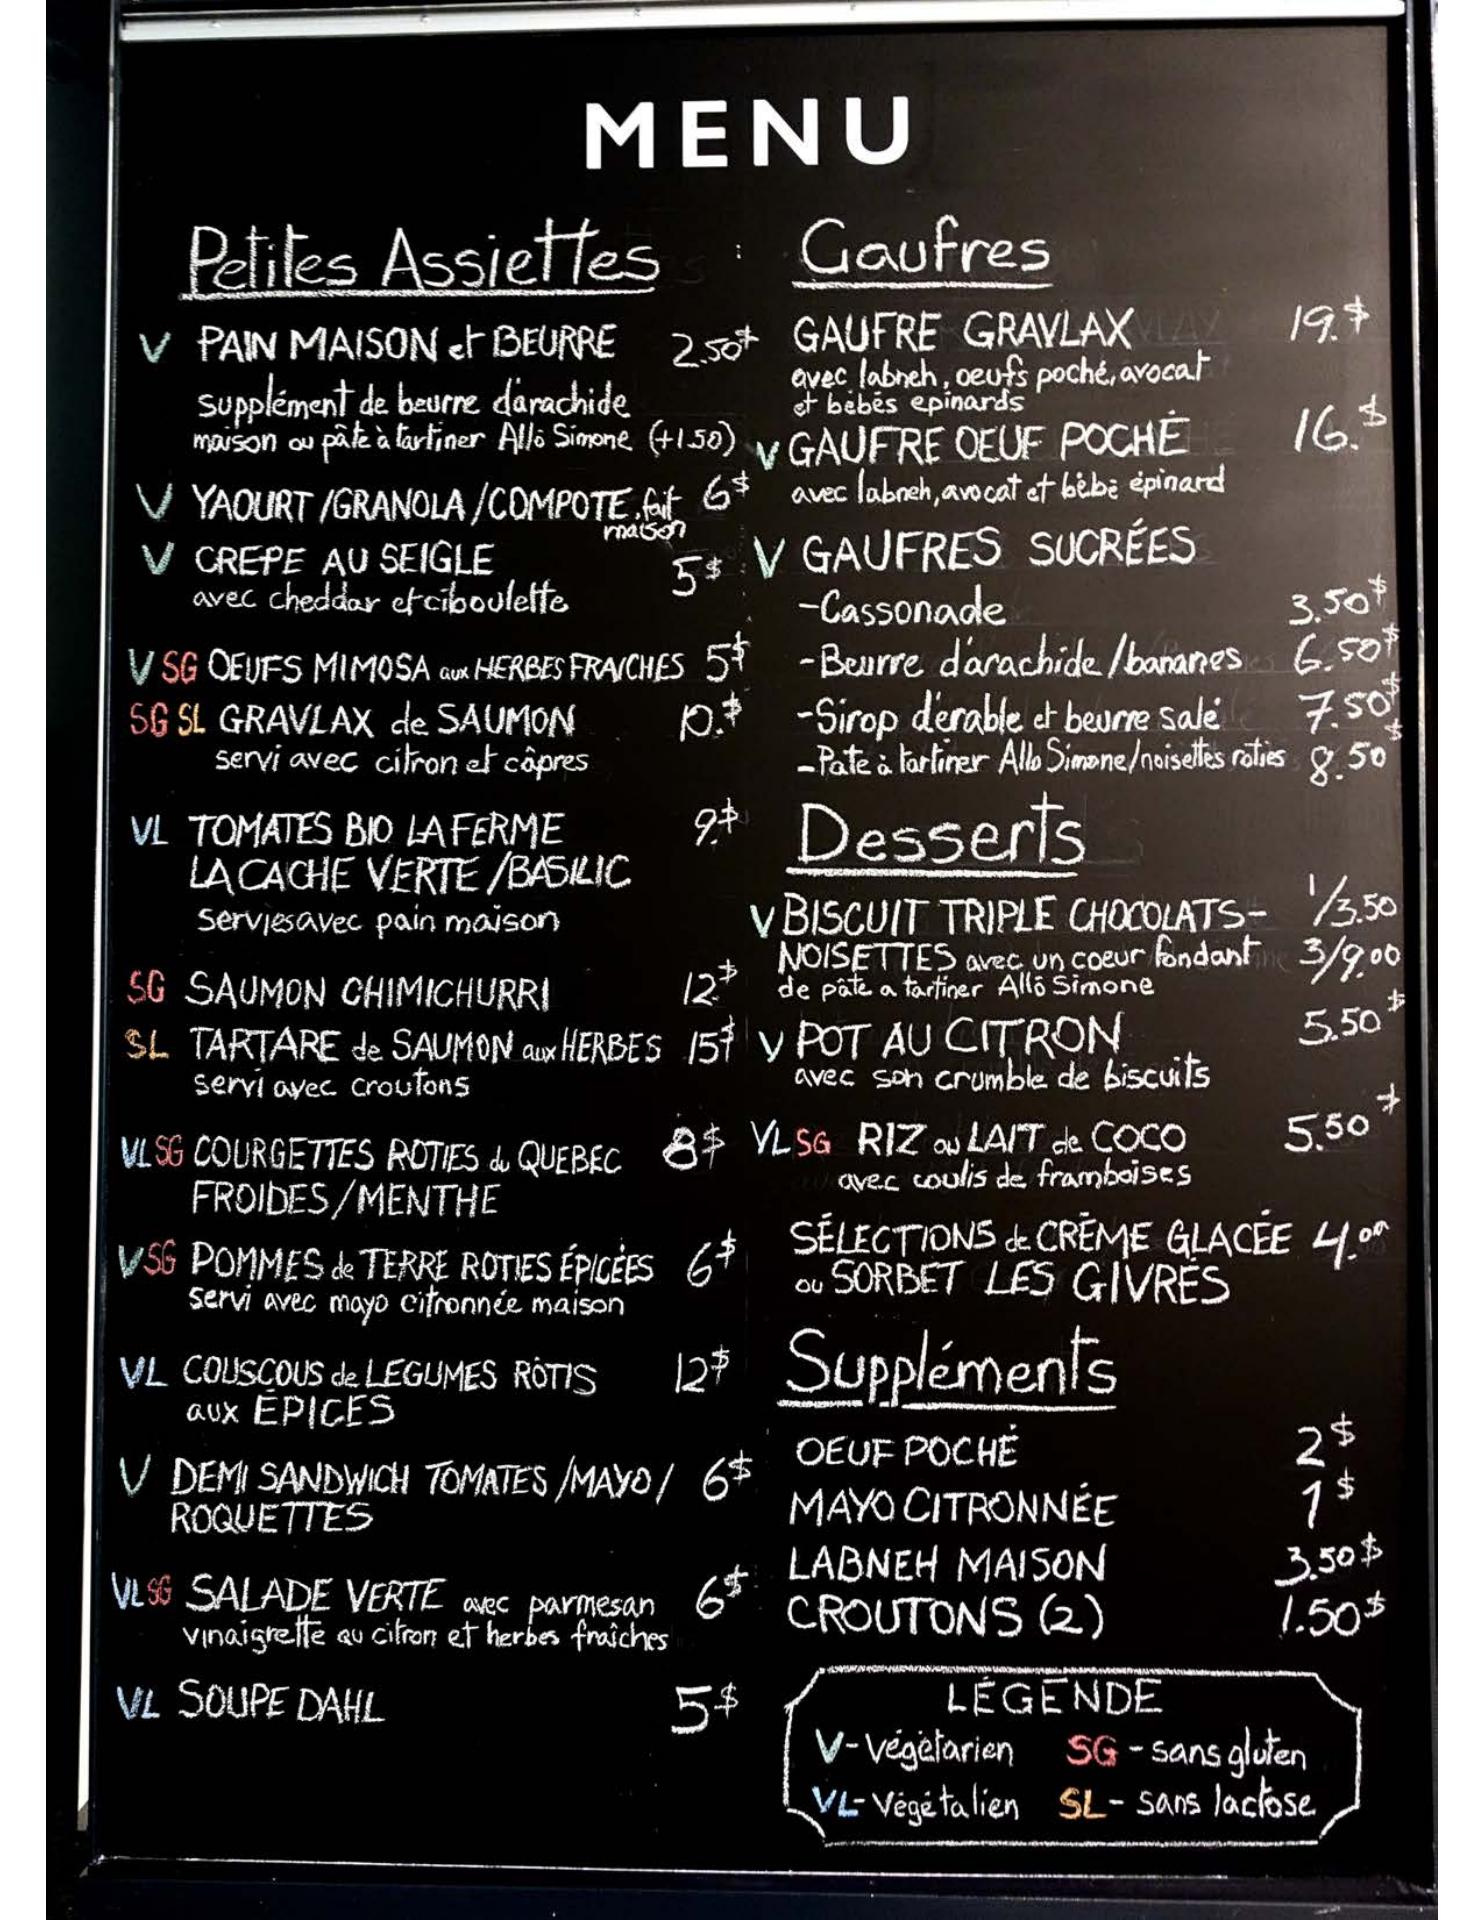 MENU
Petites Assiettes
V PAIN MAISON et BEURRE 2.50$
supplément de beurre d'arachide
maison ou pâte à tartiner Allô Simone (+1.50)
V YAOURT /GRANOLA /COMPOTE, fait 6$
maison
V CREPE AU SEIGLE 5$
avec cheddar et ciboulette
V SG OEUFS MIMOSA aux HERBES FRAICHES 5$
SG SL GRAVLAX de SAUMON 10.$
servi avec citron et câpres
VL TOMATES BIO LA FERME 9.$
LA CACHE VERTE /BASILIC
servies avec pain maison
SG SAUMON CHIMICHURRI 12$
SL TARTARE de SAUMON aux HERBES 15$
servi avec croutons
VL SG COURGETTES ROTIES du QUEBEC 8$
FROIDES/MENTHE
V SG POMMES de TERRE ROTIES ÉPICÉES 6$
servi avec mayo citronnée maison
VL COUSCOUS de LEGUMES RÔTIS 12$
aux ÉPICES
V DEMI SANDWICH TOMATES /MAYO/ 6$
ROQUETTES
VL SG SALADE VERTE avec parmesan 6$
vinaigrette au citron et herbes fraîches
VL SOUPE DAHL 5$
Gaufres
GAUFRE GRAVLAX 19.$
avec labneh, oeufs poché, avocat
et bébés epinards
V GAUFRE OEUF POCHÉ 16.$
avec labneh, avocat et bébé épinard
V GAUFRES SUCRÉES
-Cassonade 3.50$
-Beurre d'arachide /bananes 6.50$
-Sirop d'érable et beurre salé 7.50$
-Pate à tartiner Allo Simone/noisettes roties 8.50$
Desserts
V BISCUIT TRIPLE CHOCOLATS- 1/3.50
NOISETTES avec un coeur fondant 3/9.00
de pâte a tartiner Allô Simone
V POT AU CITRON 5.50$
avec son crumble de biscuits
VL SG RIZ au LAIT de COCO 5.50$
avec coulis de framboises
SÉLECTIONS de CRÈME GLACÉE 4.00
ou SORBET LES GIVRÉS
Suppléments
OEUF POCHÉ 2$
MAYO CITRONNÉE 1$
LABNEH MAISON 3.50$
CROUTONS (2) 1.50$
LÉGENDE
V-végétarien SG - sans gluten
VL-Végétalien SL - sans lactose